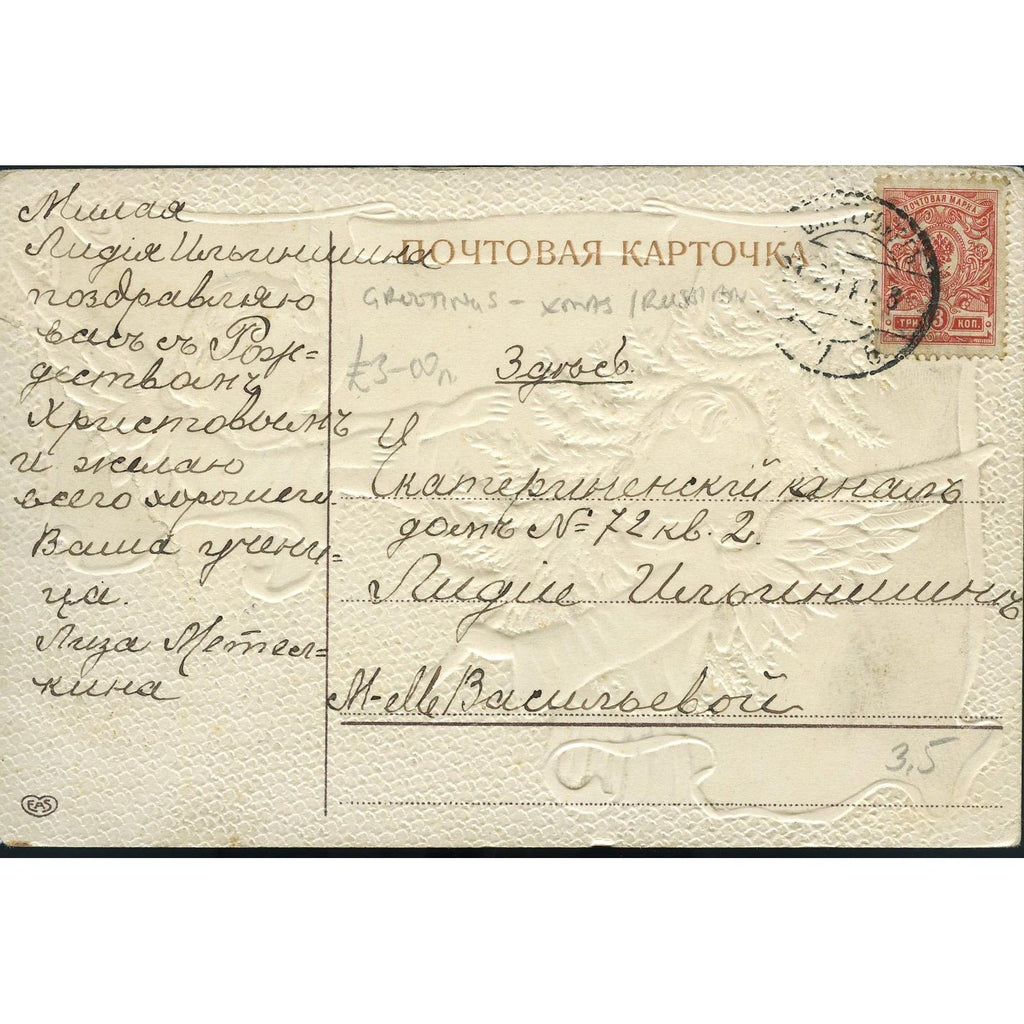 Милая
Лидія Ильинишна
поздравляю
васъ съ Рож=
дествомъ
Христовымъ
и желаю
всего хорошего.
Ваша учени-
ца.
Лиза Метел=
кина
ПОЧТОВАЯ КАРТОЧКА
GREETINGS - XMAS / RUSSIAN
£3-00
Здѣсь.
Екатерининскій каналъ
домъ № 72 кв. 2.
Лидіи Ильинишнѣ
М-Me Васильевой
3,5
EAS
ПОЧТОВАЯ МАРКА
ТРИ 3 КОП.